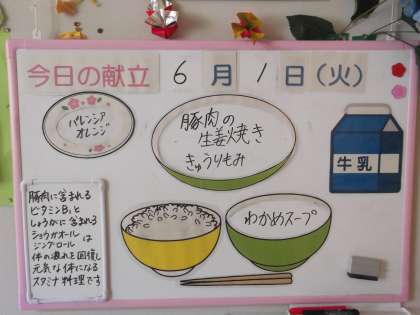 今日の献立 6月1日(火)
バレンシア
オレンジ
豚肉の
生姜焼き
きゅうりもみ
牛乳
わかめスープ
豚肉に含まれる
ビタミンB₁と
しょうがに含まれる
ショウガオール
ジンゲロールは
体の疲れを回復し
元気な体になる
スタミナ料理です